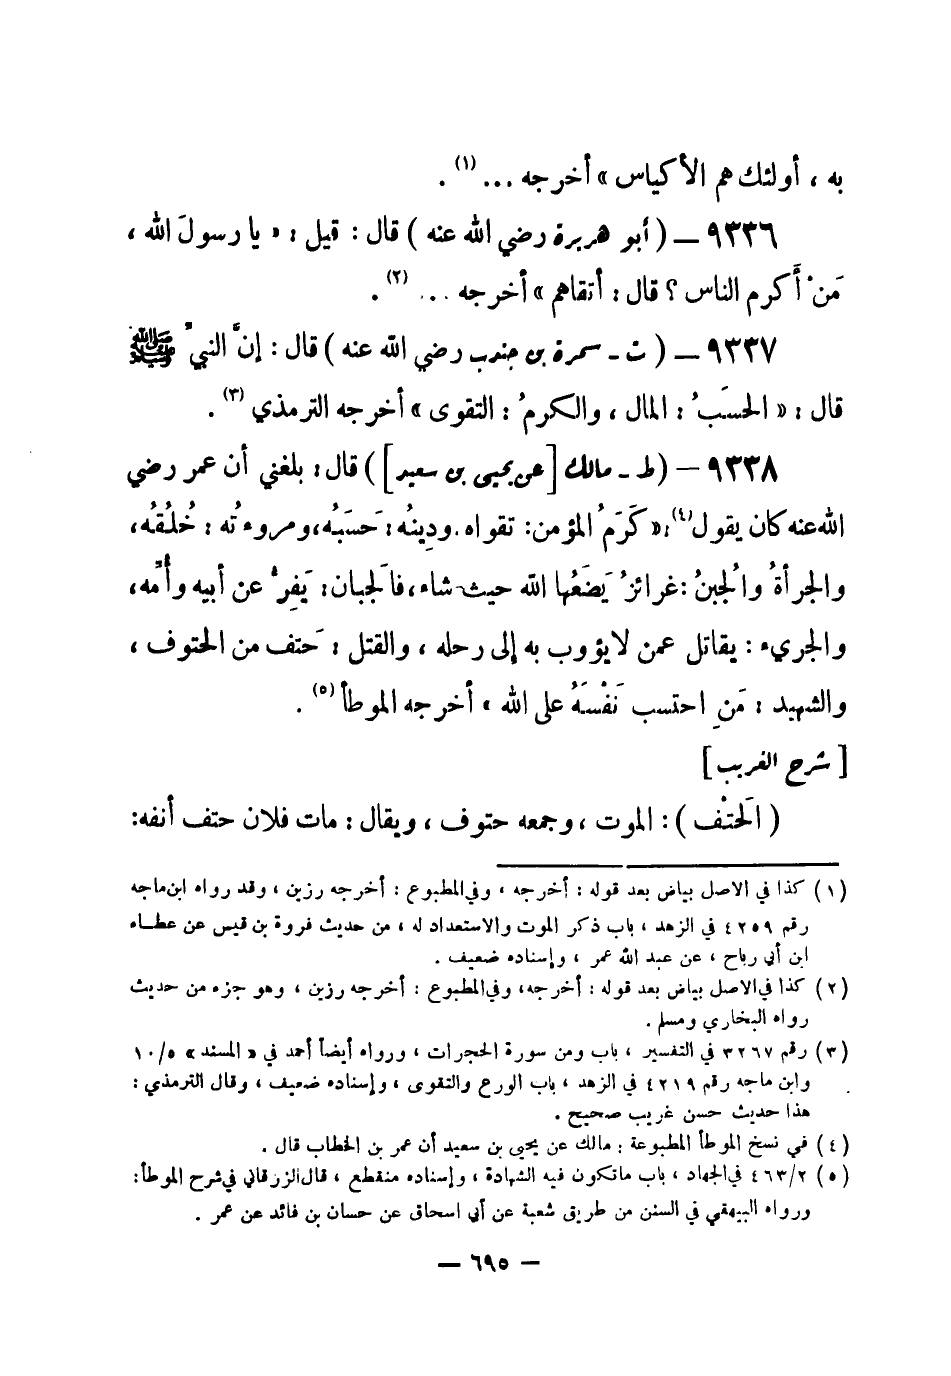 به ، أولئك هم الأكياس » أخرجه ... (١) .
٩٣٣٦ – ( أبو هريرة رضي الله عنه ) قال : قيل : « يا رسولَ الله ،
مَنْ أَكرم الناس ؟ قال : أتقاهم » أخرجه ... (٢) .
٩٣٣٧ – ( ت - سمرة بن جندب رضي الله عنه ) قال : إنَّ النبيَّ ﷺ
قال : « الحسَبُ : المال ، والكرمُ : التقوى » أخرجه الترمذي (٣) .
٩٣٣٨ – ( ط - مالك [ عن يحيى بن سعيد ] ) قال : بلغني أن عمر رضي
الله عنه كان يقول (٤) : « كَرَمُ المؤمن : تقواه . ودِينُه : حَسَبُه ، ومروءتُه : خُلُقُه ،
والجرأةُ والُجبنُ : غرائزُ يَضَعُها الله حيث شاء ، فالَجبان : يَفِرُّ عن أبيه وأُمِّه ،
والجريء : يقاتل عمن لا يؤوب به إلى رحله ، والقتل : حَتف من الحتوف ،
والشهيد : مَنِ احتسب نَفْسَهُ على الله » أخرجه الموطأ (٥) .
[ شرح الغريب ]
( الَحتْف ) : الموت ، وجمعه حتوف ، ويقال : مات فلان حتف أنفه :
(١) كذا في الاصل بياض بعد قوله : أخرجه ، وفي المطبوع : أخرجه رزين ، وقد رواه ابن ماجه
رقم ٤٢٥٩ في الزهد ، باب ذكر الموت والاستعداد له ، من حديث فروة بن قيس عن عطاء
ابن أبي رباح ، عن عبد الله عمر ، وإسناده ضعيف .
(٢) كذا في الاصل بياض بعد قوله : أخرجه ، وفي المطبوع : أخرجه رزين ، وهو جزء من حديث
رواه البخاري ومسلم .
(٣) رقم ٣٢٦٧ في التفسير ، باب ومن سورة الحجرات ، ورواه أيضاً أحمد في « المسند » ٥/١٠
وابن ماجه رقم ٤٢١٩ في الزهد ، باب الورع والتقوى ، وإسناده ضعيف ، وقال الترمذي :
هذا حديث حسن غريب صحيح .
(٤) في نسخ الموطأ المطبوعة : مالك عن يحيى بن سعيد أن عمر بن الخطاب قال .
(٥) ٤٦٣/٢ في الجهاد ، باب ماتكون فيه الشهادة ، وإسناده منقطع ، قال الزرقاني في شرح الموطأ :
ورواه البيهقي في السنن من طريق شعبة عن أبي اسحاق عن حسان بن فائد عن عمر .
– ٦٩٥ –